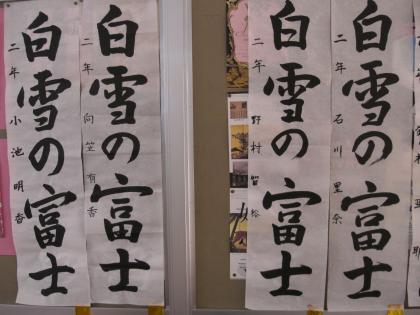 白雪の富士
二年 石川里奈
白雪の富士
二年 野村
白雪の富士
二年 向笠有香
白雪の富士
二年 小池明香